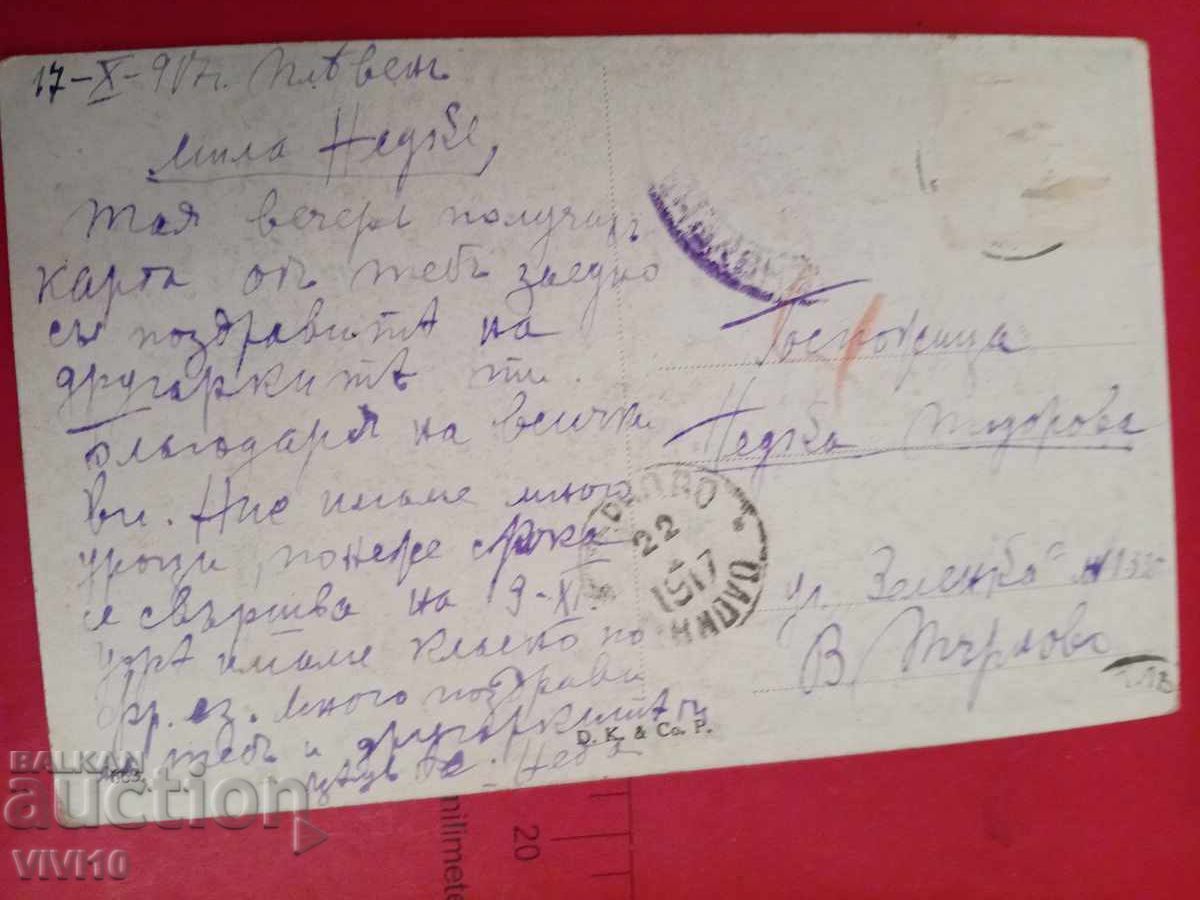 17-X-917г. Плѣвен
мила Недке,
Тая вечерь получихъ
карта отъ тебъ заедно
съ поздравитѣ на
другаркитѣ ти.
Благодаря на всички
ви. Ние имаме много
уроци, понеже срока
се свършва на 9-XI.
имаме класно по
фр. ез. Много поздрави
на тебъ и другаркитѣ ти
Неба
Госпожица
Недка Тодорова
ул. Зеленка
В. Търново
22
1917
D. K. & Co. P.
BALKAN
auction
VIVI10
milimete
20